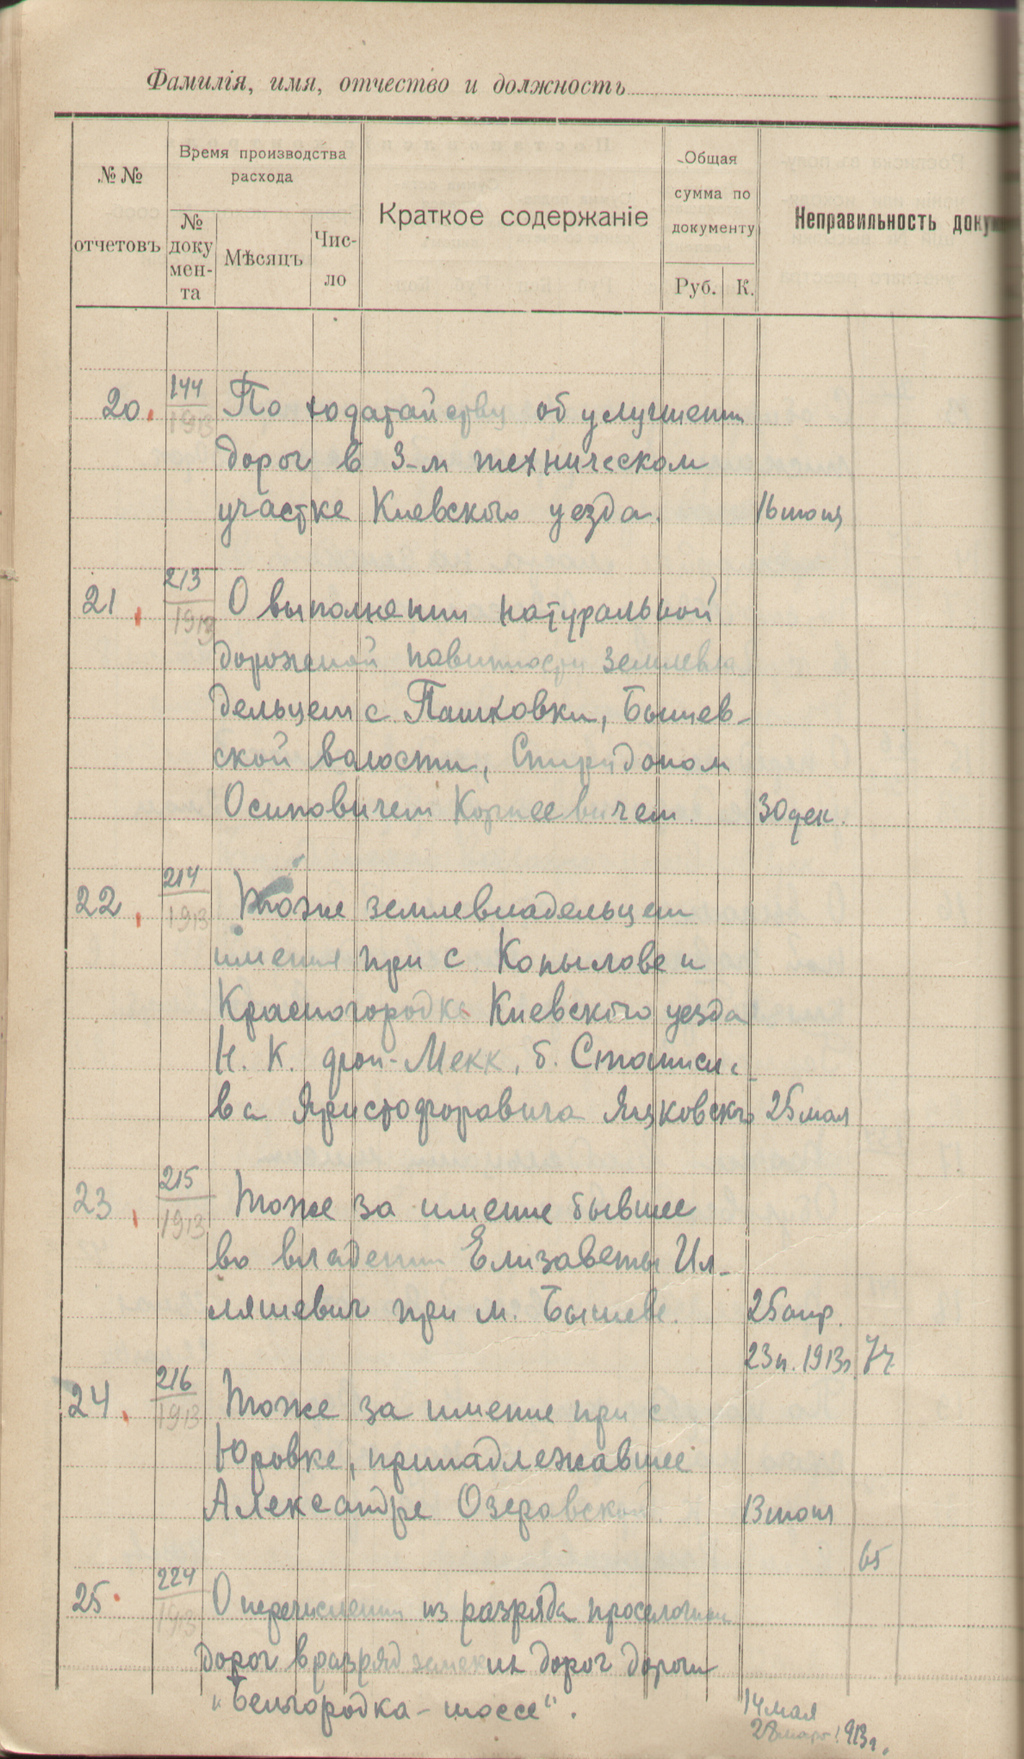 Фамилія, имя, отчество и должность
№№ отчетовъ
Время производства расхода
№ доку мен- та
Мѣсяцъ
Чис- ло
Краткое содержаніе
Общая сумма по документу
Руб. К.
Неправильность доку
20. 144 1913 По ходатайству об улучшении
дорог в 3-м техническом
участке Киевского уезда. 16 июня
21. 213 1913 О выполнении натуральной
дорожной повинности землевла
дельцем с Пашковки, Бышев-
ской волости, Спиридоном
Осиповичем Корнеевичем 30 дек.
22. 214 1913 Тоже землевладельцем
имения при с Копылове и
Красногородке Киевского уезда
Н. К. фон-Мекк, б. Станисла
ва Христофоровича Яцковского 25 мая
23. 215 1913 Тоже за имение бывшее
во владении Елизаветы Ил-
ляшевич при м. Бышеве. 25 апр.
23 н. 1913г
24. 216 1913 Тоже за имение при с
Юровке, принадлежавшее
Александре Озеровской. 13 июня
65
25. 224 1913 О перечислении из разряда проселочных
дорог в разряд земских дорог дороги
"Белгородка-шоссе". 14 мая
28 март 1913г.